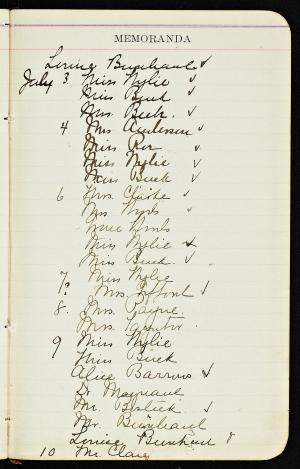 MEMORANDA
Louise Burnhaul ✓
July 3. Miss Wylie ✓
Miss Buck ✓
Mrs. Beck. ✓
4 Mrs Anderson ✓
Miss Roz ✓
Miss Wylie ✓
Miss Buck ✓
6 Mrs. Clarke ✓
Mrs.
Miss Wylie ✓
Miss Buck. ✓
7 Miss Wylie
? Mrs. ✓
8. Mrs. Payne
Mrs.
9 Miss Wylie
Miss Buck
Alice Barrows ✓
Dr Maynard
Mr. Bostick ✓
Mr. Burnhaul
Louise Burnhaul ✓
10 Mr. Clare